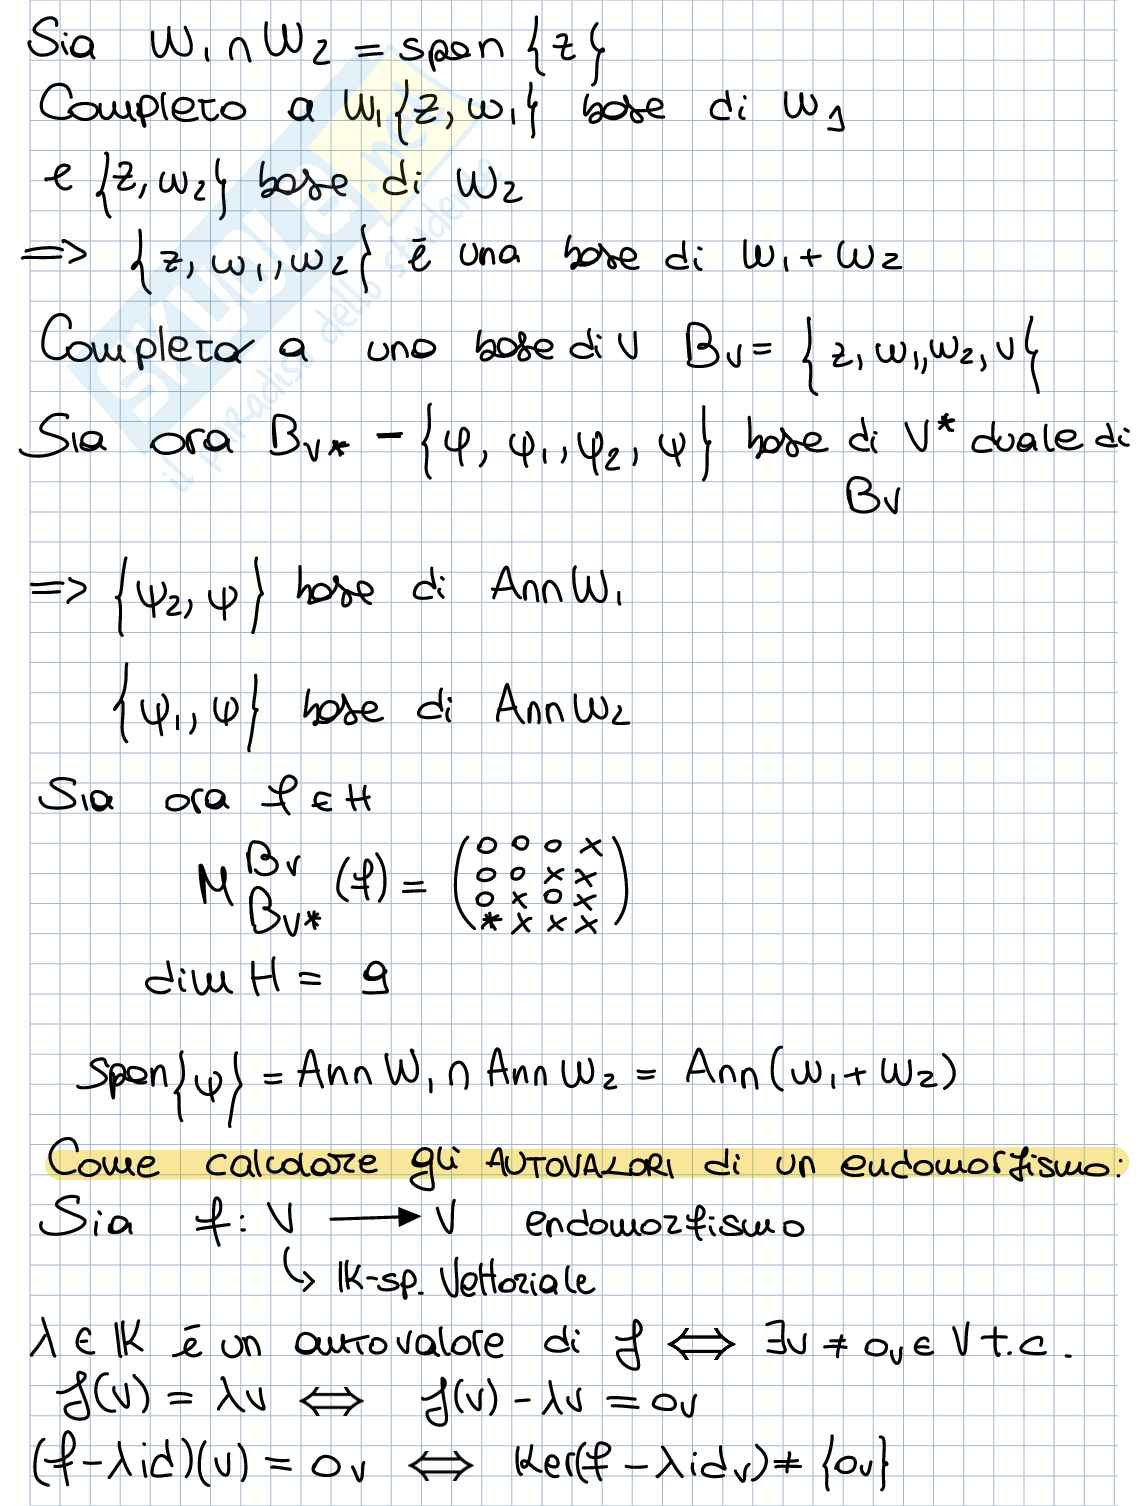 Sia W₁ ∩ W₂ = span {z}
Completo a W₁ {z, w₁} base di W₁
e {z, w₂} base di W₂
=> {z, w₁, w₂} è una base di W₁ + W₂
Completo a una base di V B_V = {z, w₁, w₂, v}
Sia ora B_V* = {φ, φ₁, φ₂, ψ} base di V* duale di
B_V
=> {φ₂, ψ} base di Ann W₁
{φ₁, ψ} base di Ann W₂
Sia ora f ∈ H
M^{B_V}_{B_V*} (f) =
0 0 0 x
0 0 x x
0 x 0 x
* x x x
dim H = 9
span{ψ} = Ann W₁ ∩ Ann W₂ = Ann (W₁ + W₂)
Come calcolare gli AUTOVALORI di un endomorfismo:
Sia f: V → V endomorfismo
↳ IK-sp. Vettoriale
λ ∈ IK è un autovalore di f ⟺ ∃v ≠ 0_V ∈ V t.c.
f(v) = λv ⟺ f(v) - λv = 0_V
(f - λid)(v) = 0_V ⟺ Ker(f - λid_V) ≠ {0_V}
SKUOLA.net
il paradiso dello studente